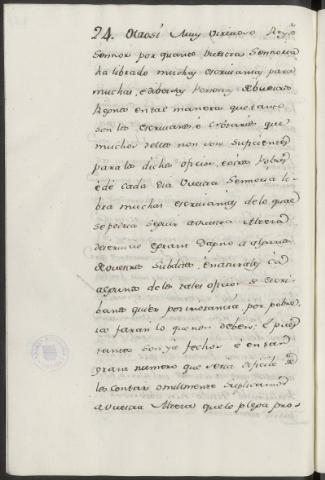 24. Otrosi Muy Virtuoso Rey e
Sennor por quanto Vuestra Sennoria
ha librado muchas escrivanias para
muchas, e diversas Personas de vuestros
Regnos en tal manera que tantos
son los escrivanos e Notarios que
muchos dellos non son suficientes
para los dichos oficios, e otros Pobres
e de cada dia Vuestra Sennoria li-
bra muchas escrivanias de lo qual
se podria seguir a vuestra Alteza
deservicio e gram Dapno a algunos
de vuestros Subditos, e naturales, ca
algunos de los tales oficios de escri-
bania quier por instancia por pobre-
za faran lo que non deben; e pues
tantos son ya fechos e en tan
gram numero que seria dificile de
les contar omilmente suplicamos
a vuestra Alteza que le plega pro-